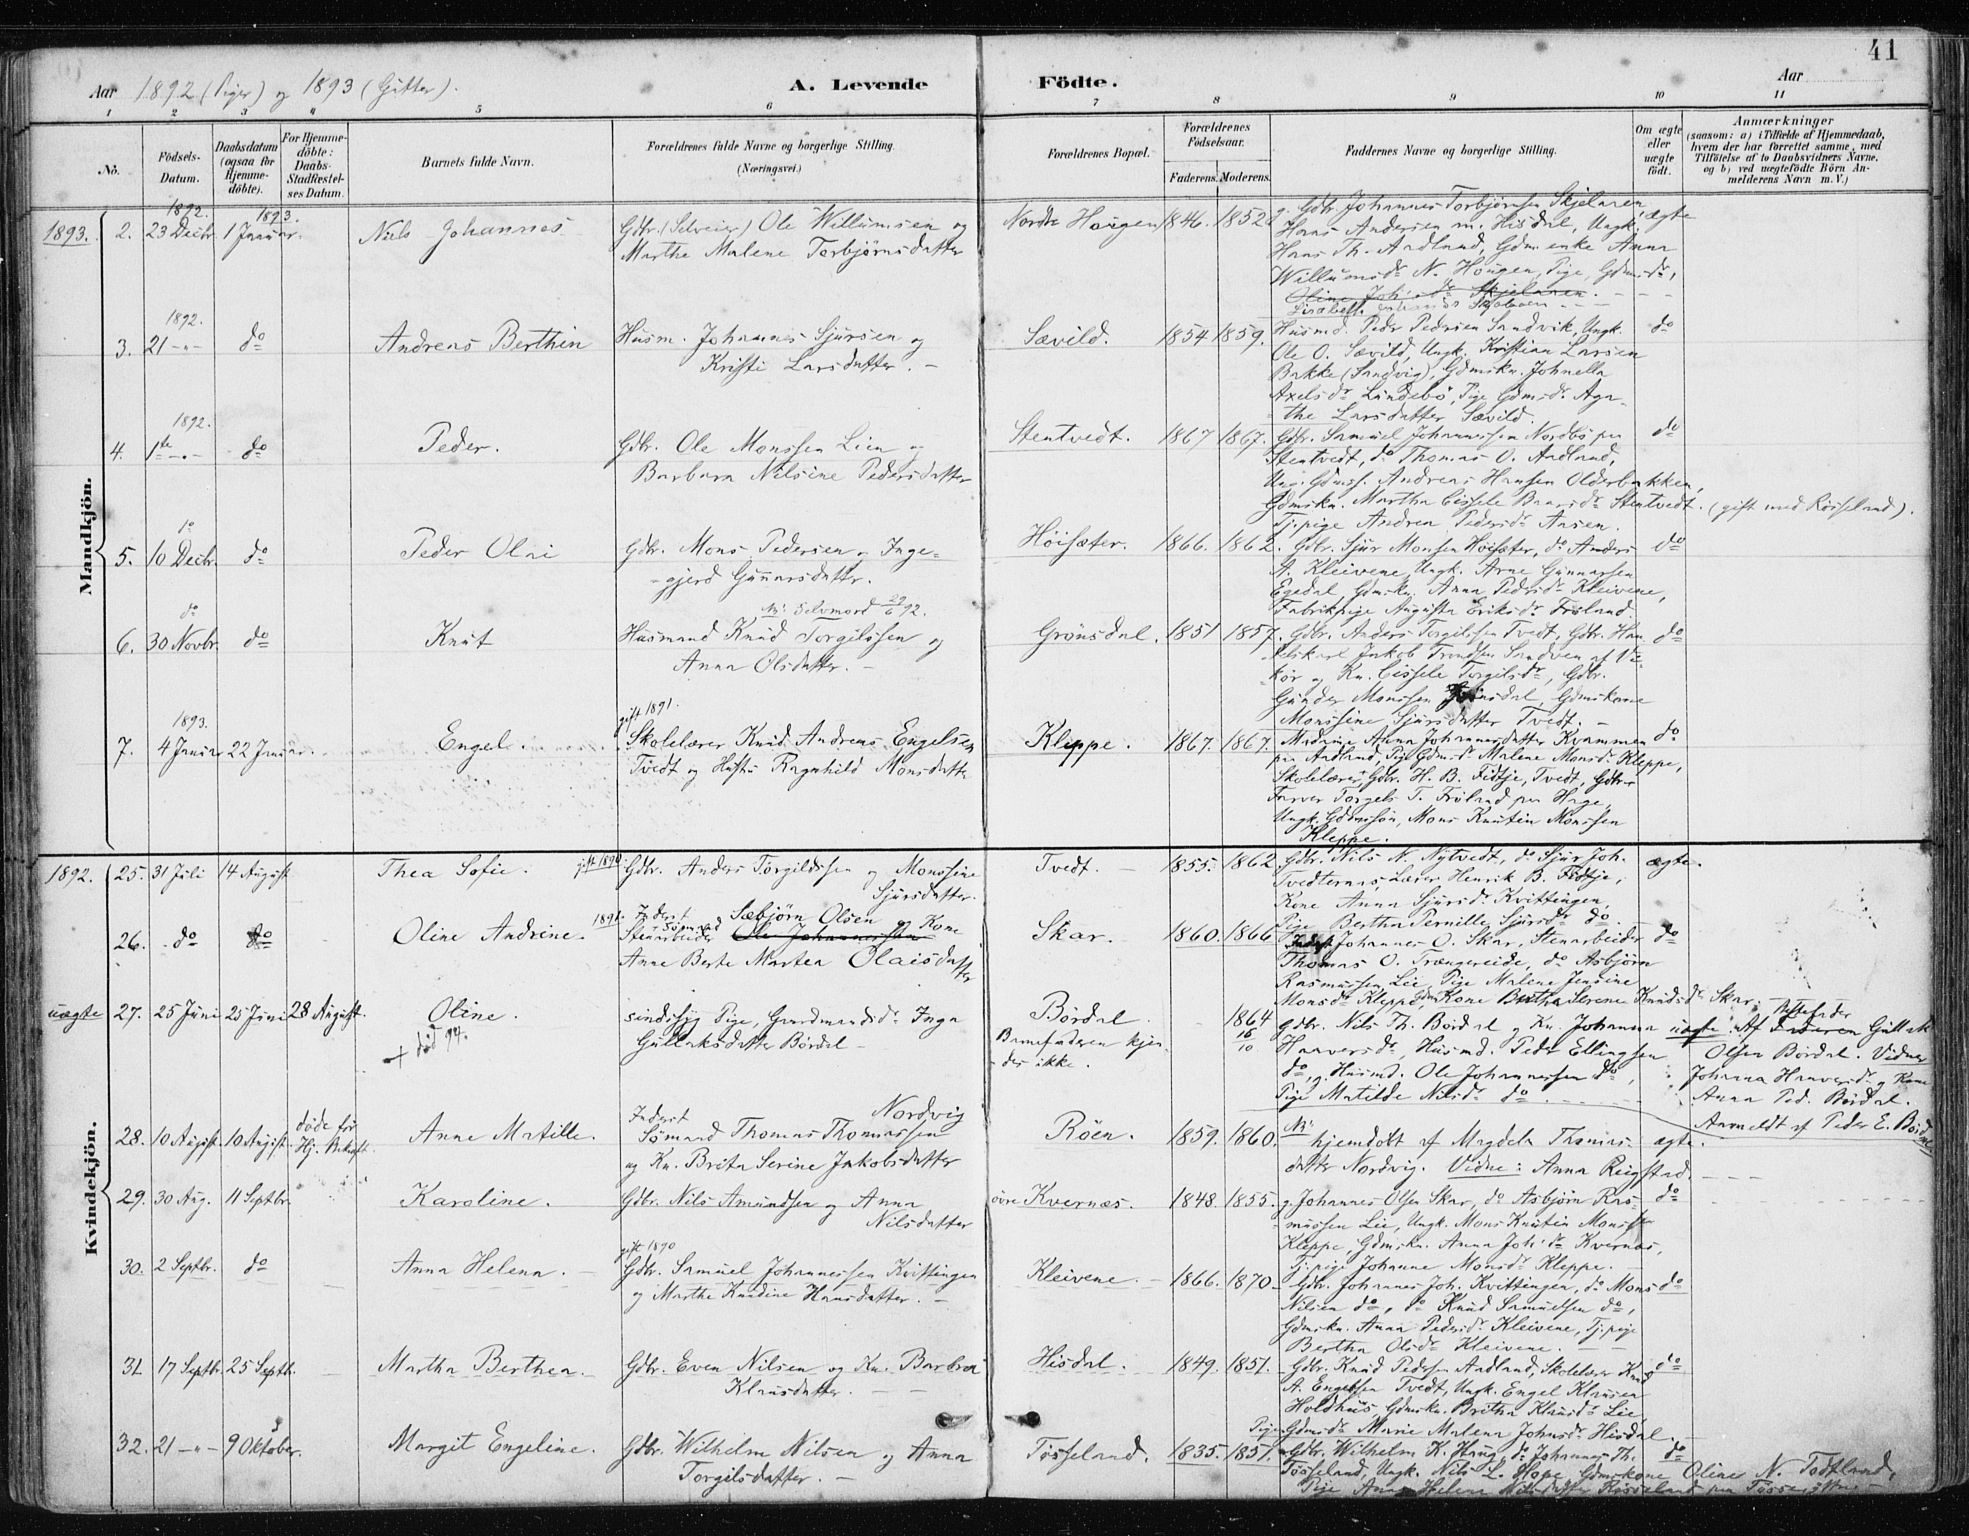 41
Aar 1892 (Piger) og 1893 (Gutter).
A. Levende Födte.
Aar
1 2 3 4 5 6 7 8 9 10 11
No.
Födsels-Datum.
Daabsdatum (ogsaa for Hjemme-döbte).
For Hjemme-döbte: Daabs-Stadfestel-ses Datum.
Barnets fulde Navn.
Forældrenes fulde Navne og borgerlige Stilling.
(Næringsvei.)
Forældrenes Bopæl.
Forældrenes Födselsaar.
Faderens. Moderens.
Faddernes Navne og borgerlige Stilling.
Om ægte eller uægte født.
Anmærkninger
(saasom: a) i Tilfælde af Hjemmedaab, hvem der har forrettet samme, med Tilföielse af to Daabsvidners Navne, og b) ved uægtefödte Börn Anmelderens Navn m. V.)
Mandkjön.
1893. 2. 1892. 23 Decbr. 1893. 1 Januar. Niels Johannes
Gdbr. (Selveier) Ole Willumsen og
Marthe Malene Torbjørnsdatter
Nordre Hougen 1846. 1852.
Gdbr. Johannes Torbjørnsen Skjelaren, ægte
Hans Andersen m. Hisdal, Ungk.
Hans Th. Aadland, Gdm. enke Anna
Willumsdr N. Hougen, Pige, Gdmsdr,
Oline Joh.dr Skjelaren.
3. 1892. 21 -"- do Andreas Berthin
Husm. Johannes Sjursen og
Kristi Larsdatter.
Sævild. 1854 1859.
Husmd. Peder Pedersen Sandvik, Ungk. do
Ole O. Sævild, Ungk. Kristian Larsen
Bakke (Sandvig), Gdmskn. Johnella
Axelsdr Lundebö, Pige Gdmsdr Aga-
the Larsdatter Sævild.
4. 1892. 1ste -"- do Peder.
Gdbr. Ole Monssen Lien og
Barbara Nilsine Pedersdatter
Stentvedt. 1867 1867.
Gdbr. Samuel Johannessen Nordbö paa do
Stentvedt, do Thomas O. Aadland,
Ung. Gdms. Andreas Hansen Olderbakken,
Gdmskn. Martha Cissele Baarsdr Stentvedt. (gift med Røsseland).
Tj.pige Andrea Pedersdr Aasen.
5. do 10 Decbr. do Peder Olai
Gdbr. Mons Pedersen og Inge-
gjerd Gunnarsdatter.
Höisæter. 1866. 1862.
Gdbr. Sjur Monsen Höisæter, do Anders do
A. Kleivene, Ungk. Arne Gunnarsen
Egedal, Gdmskn. Anna Pedersdr Kleivene,
Fabrikpige Augusta Eriksdr Fröland
6. do 30 Novbr. do Knut
NB: Selvmord 29/6 92.
Husmand Knud Torgilssen og
Anna Olsdatter.
Grönsdal. 1851 1857.
Gdbr. Anders Torgilssen Tvedt, Gdbr. Han- do
delskarl Jakob Trondsen Sandven af Vi-
kör og Kn. Cissele Torgilsdr, Gdbr.
Gunder Monssen Grönsdal, Gdmskone
Monsine Sjursdatter Tvedt.
7. 1893. 4 Januar 22 Januar. Engel.
gift 1891.
Skolelærer Knud Andreas Engelsen
Tvedt og Hustru Ragnhild Monsdatter
Kleppe. 1867. 1867.
Madame Anna Johannesdatter Kvammen do
paa Aadland, Pige Gdmsdr Malene Monsdr Kleppe,
Skolelærer, Gdbr. H. B. Fidtje, Tvedt, Gdbr.
Farver Torgels T. Fröland paa Hage,
Ungk. Gdmssön, Mons Knutin Monssen
Kleppe.
Kvindekjön.
1892. 25. 31 Juli 14 August Thea Sofie.
gift 1890.
Gdbr. Anders Torgildssen og Monssine
Sjursdatter.
Tvedt. 1855. 1862.
Gdbr. Nils N. Nytvedt, do Sjur Joh. ægte.
Tvedternæs, Lærer Henrik B. Fidtje,
Kone Anna Sjursdr Kvittingen,
Pige Bertha Pernille Sjursdr do
26. do do Oline Andrine.
1891. Inderst Sæbjörn Olsen
Stenarbeider Ole Johannessen og Kone
Anne Berte Martea Olaisdatter
Skar. 1860. 1866
Inderst Johannes O. Skar, Stenarbeider do
Thomas O. Trængereide, do Asbjörn
Rasmussen Lie, Pige Malene Jensine
Monsdr Kleppe, Kone Bertha Serene Knudsdr Skar.
uægte 27. 25 Juni 25 Juni 28 August. Oline.
+ död 94.
sindssyg Pige, Gaardmandsdr Inga
Gullaksdatter Bördal
Bördal.
Barnefaderen kjen-
des ikke.
1864 16/10
Gdbr. Nils Th. Bördal og Kn. Johanna uægte. Af Bestefader Faderen Gullak
Haaversdr, Husmd. Peder Ellingsen Olsen Bördal. Vidner
do, og Husmd. Ole Johannessen do, Johanna Haaversdr og Kone
Pige Matilde Nilsdr do Anna Ped. Bördal.
Anmeldt af Peder E. Bördal
28. 10 August 10 August. döde för Hj. Bekræft. Anne Matille.
Inderst Nordvig
Sömand Thomas Thomassen
og Kn. Brita Serine Jakobsdatter
Röen. 1859. 1860.
NB: hjemdöbt af Magdela Thomas- ægte.
datter Nordvig. Vidne: Anna Rugstad.
29. 30 Aug. 11 Septbr. Karoline.
Gdbr. Nils Amundsen og Anna
Nilsdatter
övre Kvernæs. 1848. 1855.
g. Johannes Olsen Skar, do Asbjörn Ras- do
mussen Lie, Ungk. Mons Knutin Monssen
Kleppe, Gdmskn. Anna Joh.dr Kvernæs,
Tj.pige Johanne Monsdr Kleppe.
30. 2 Septbr. do Anna Helena.
gift 1890
Gdbr. Samuel Johannessen Kvittingen
og Marthe Knudine Hansdatter.
Kleivene. 1866. 1870.
Gdbr. Johannes Joh. Kvittingen, do Mons do
Nilsen do, do Knud Samuelsen do,
Gdmskn. Anna Pedersdr Kleivene, Tj.pige
Bertha Olsdr Kleivene.
31 17 Septbr. 25 Septbr. Martha Berthea.
Gdbr. Even Nilsen og Kn. Barbra
Klausdatter.
Hisdal. 1849. 1851.
Gdbr. Knud Pedersen Aadland, Skolelærer Knud do
A. Engelsen Tvedt, Ungk. Engel Klausen
Holdhus, Gdmskn. Britha Klausdr Lie,
Pige Gdmsdr Marie Malena Johnsdr Hisdal.
32. 21 -"- 9 Oktober. Margit Engeline.
Gdbr. Wilhelm Nilsen og Anna
Torgilsdatter.
Tösseland. 1835. 1851.
Gdbr. Wilhelm K. Haug, do Johannes Th. do
Tösseland, Ungk. Nils L. Hope, Gdmskone Oline N. Todtland,
Pige Anna Helene Nilsdatter Rösseland paa